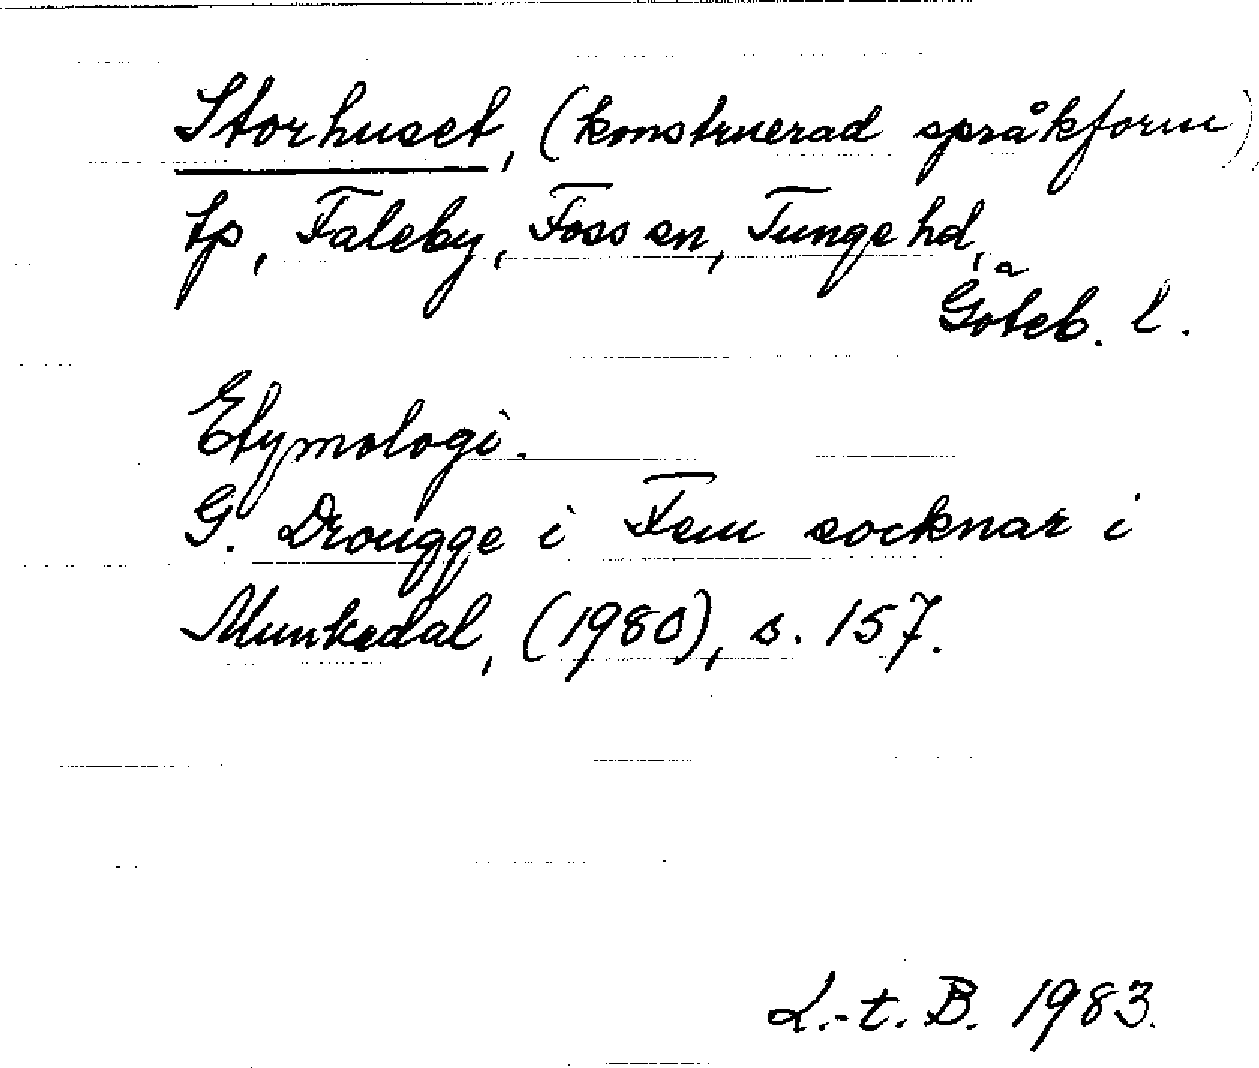 Storhuset, (konstruerad språkform),
tp, Faleby, Foss sn, Tunge hd,
Göteb. l.
Etymologi.
G. Drougge i Fem socknar i
Munkedal, (1980), s. 157.
L.-t. B. 1983.